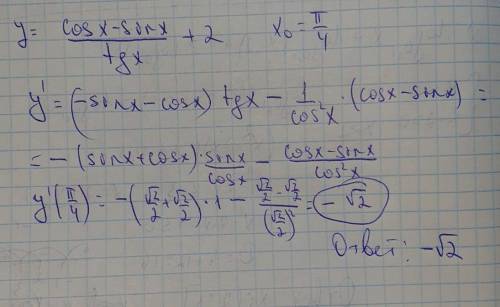 y = (cosx - sinx)/(tgx) + 2    x₀ = π/4
y' = (-sinx - cosx) tgx - 1/(cos²x) · (cosx - sinx) =
= - (sinx + cosx) · sinx/cosx - (cosx - sinx)/(cos²x)
y'(π/4) = -(√2/2 + √2/2) · 1 - (√2/2 - √2/2)/(√2/2)² = -√2
Ответ: -√2